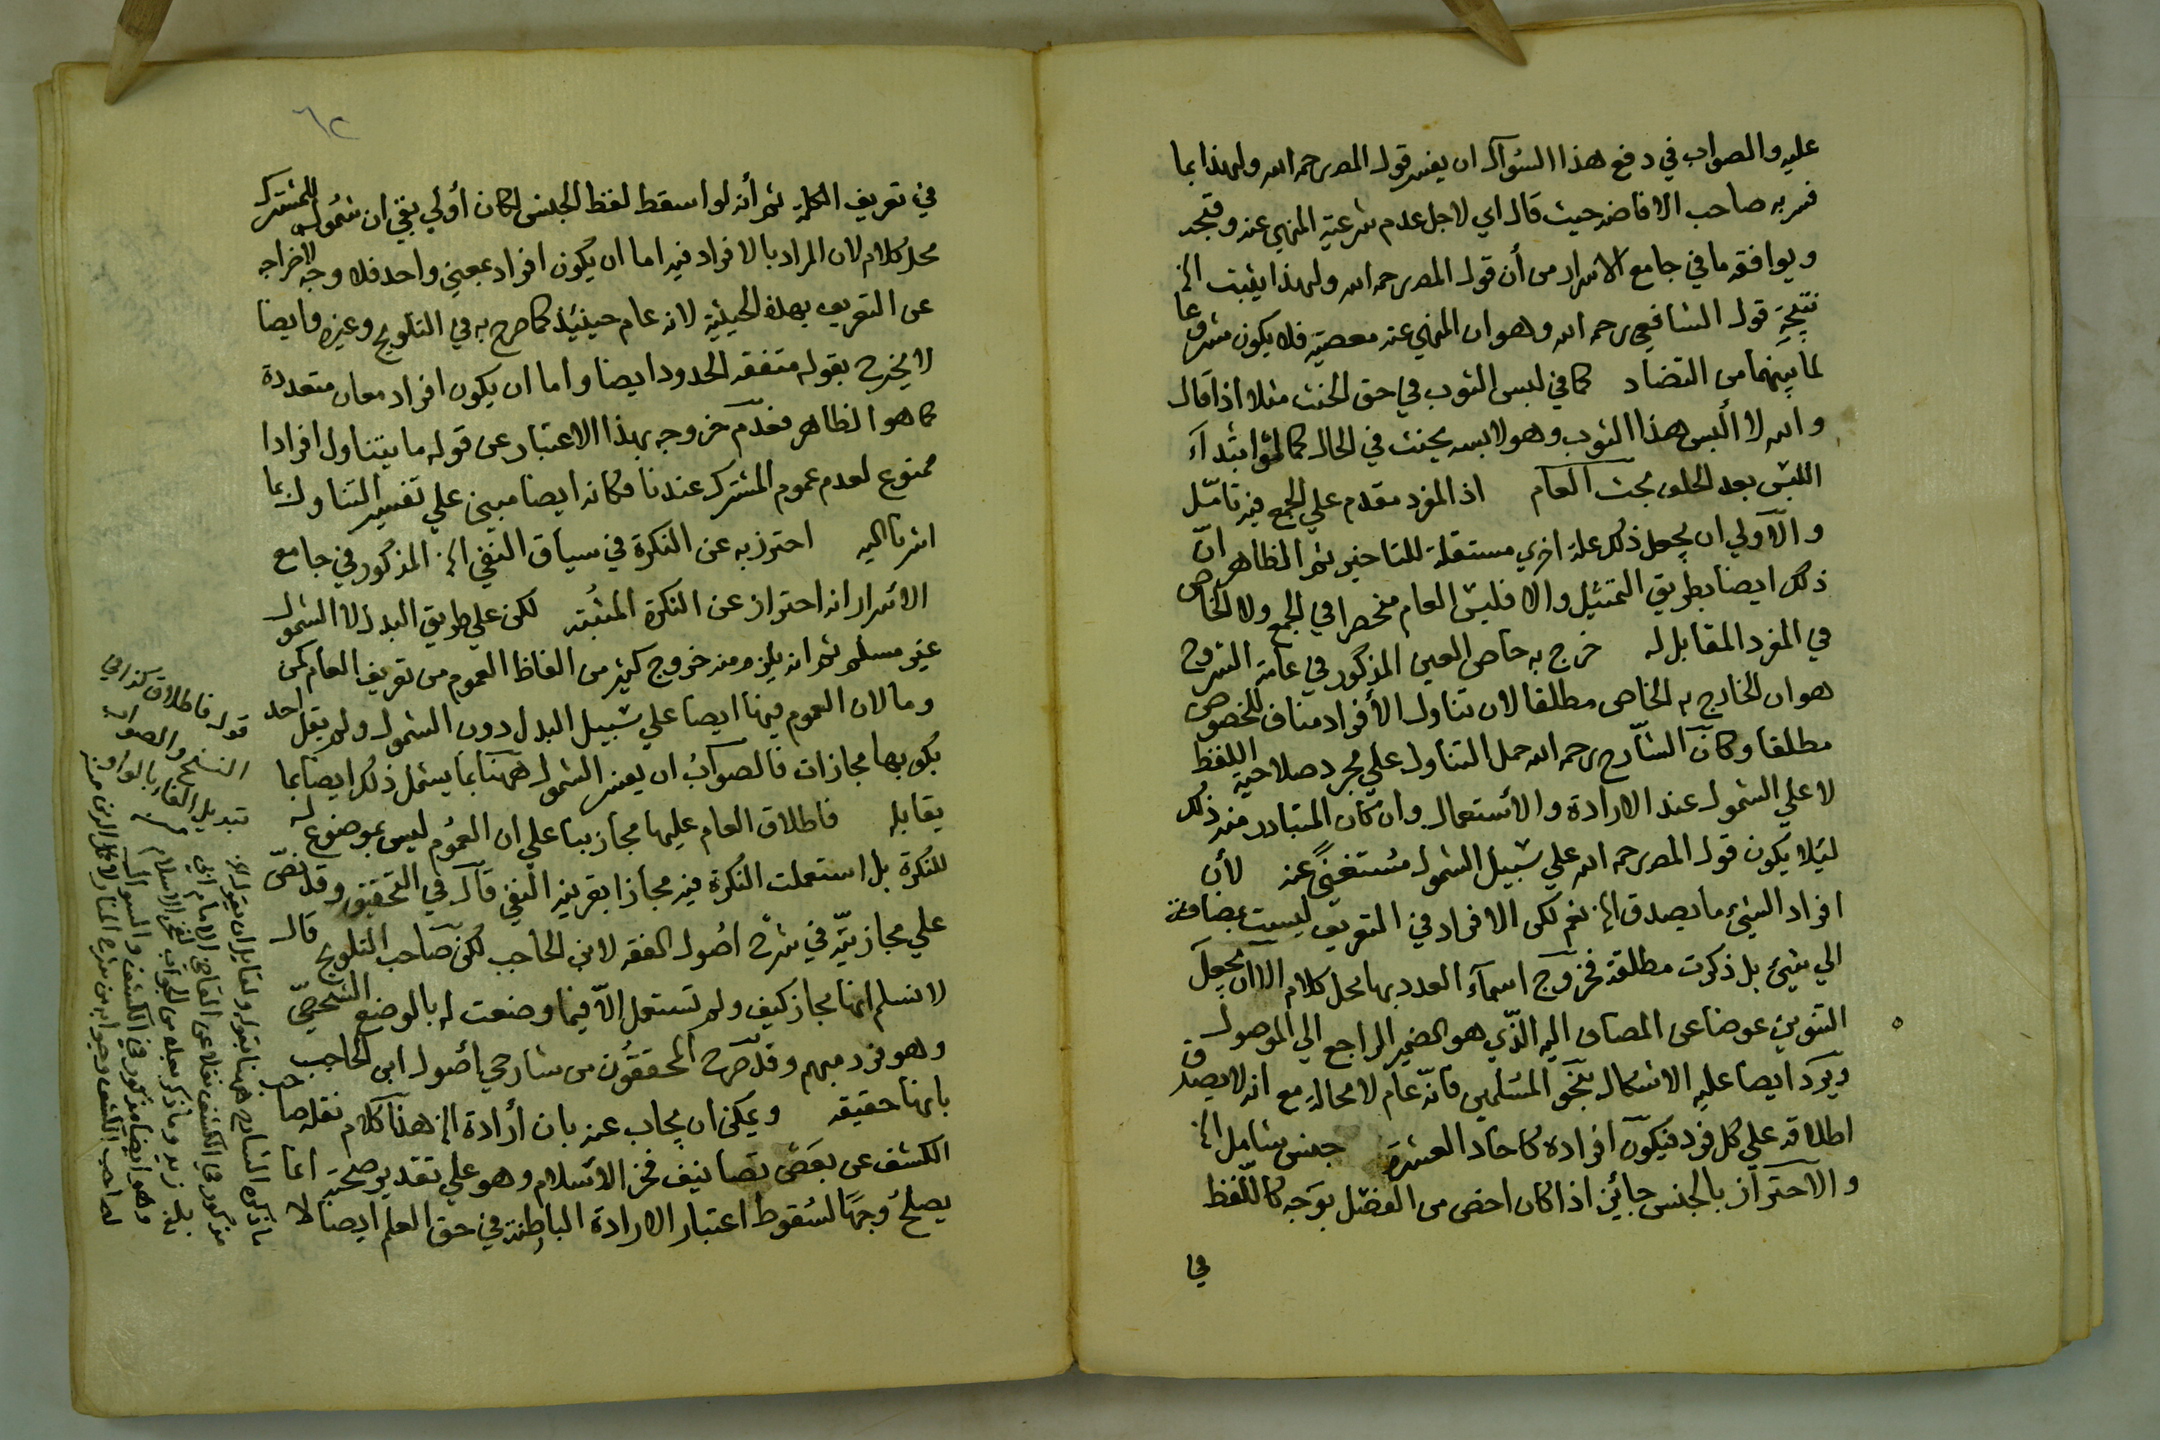 عليه والصواب في دفع هذا السؤال ان يفسر قول المص رحمه الله ولهذا بما
فسر به صاحب الافاضه حيث قال اي لاجل عدم شرعية المنهي عنه وقبحه
ويوافقه ما في جامع الاسرار من أن قول المص رحمه الله ولهذا يثبت الخ
نتيجة قول الشافعي رحمه الله وهو ان المنهي عنه معصية فلا يكون مشروعا
لما بينهما من التضاد كما في لبس الثوب في حق الحنث مثلا اذا قال
والله لا ألبس هذا الثوب وهو لابسه يحنث في الحال كما لو ابتدآء
اللبس بعد الحلف مبحث العام اذ المفرد مقدم علي الجمع فيه تامّل
والاولي ان يجعل ذلك علة اخري مستقلة للتاخير ثم الظاهر انّ
ذلك ايضا بطريق التمثيل والا فليس العام منحصرا في الجمع ولا الخاص
في المفرد المقابل له خرج به خاص العين المذكور في عامة الشروح
هو ان الخارج به الخاص مطلقا لان تناول الأفراد مناف للخصوص
مطلقا وكانّ الشّارح رحمه الله حمل التناول علي مجرد صلاحية اللفظ
لا علي الشمول عند الارادة والاستعمال وان كان المتبادر منه ذلك
ليلا يكون قول المص رحمه الله علي سبيل الشمول مستغنىً عنه لأن
افراد الشيء ما يصدق الخ نعم لكن الافراد في التعريف ليست بمضافة
الي شيئ بل ذكرت مطلقة فخروج اسمآء العدد بها محل كلام الا ان يجعل
التنوين عوضا عن المضاف اليه الذّي هو الضمير الراجع الي الموصول
ويرد ايضا عليه الاشكال بنحو المسلمين فانّه عام لا محالة مع انه لا يصدق
اطلاقه علي كل فرد فيكون افراده كاحاد العشرة جنس شامل الخ
والاحتراز بالجنس جائز اذا كان اخص من الفصل بوجه كاللّفظ
في
٦٢
في تعريف الكلمة ثم أنه لو اسقط لفظ الجنس لكان أولي بقي ان شمول للمشترك
محل كلام لان المراد بالافراد فيه اما ان يكون افراد بمعني واحد فلا وجه لاخراجه
عن التعريف بهذه الحيثية لانه عام حينئذ كما صرح به في التلويح وغيره وايضا
لا يخرج بقوله متفقه الحدود ايضا واما ان يكون افراد معان متعددة
كما هو الظاهر فعدم خروجه بهذا الاعتبار عن قوله ما يتناول افرادا
ممنوع لعدم عموم المشترك عندنا فكانه ايضا مبني علي تفسير التناول بما
اشرنا اليه احترز به عن النكرة في سياق النفي الخ المذكور في جامع
الاسرار انه احتراز عن النكرة المثبُته لكن علي طريق البدل لا الشمول
غير مسلم ثم انه يلزم منه خروج كثير من الفاظ العموم من تعريف العام كمن
وما لان العموم فيها ايضا علي سبيل البدل دون الشمول ولم يقل احد
بكونها مجازات فالصوابُ ان يفسر الشمول ههنا بما يشمل ذلك ايضا بما
يقابله فاطلاق العام عليها مجاز بنا علي ان العموم ليس بموضوع له
للنكرة بل استعملت النكرة فيه مجازا بقرينة النفي قال في التحقيق وقد نصّ
علي مجازيّته في شرح اصول الفقه لابن الحاجب لكن صاحب التلويح قال
لا نسلم انها مجاز كيف ولم تستعمل الّا فيما وضعت له بالوضع الشخصيّ
وهو فرد مبهم وقد صرح المحققوُن من شارحي أصول ابن الحاجب
بانها حقيقه ويمكن ان يجاب عنه بان أرادة الخ هذا كلام نقله صاحب
الكشف عن بعض تصانيف فخر الاسلام وهو علي تقدير صحته انما
يصلح وجهًا لسقوط اعتبار الارادة الباطنة في حق العلم ايضا لا
قوله فاطلاق كذا في
النسخ والصواب
تبديل الفاء بالواو
ما ذكره الشارح ههنا بقوله ولقايل ان يقول الخ
مذكور في الكشف نقلا عن القاضي الامام ابي
زيد وما ذكر بعده من الجواب لفخر الاسلام
وهو ايضا مذكور في الكشف والسؤال
لصاحب الكشف وجوابه من شرح المنار